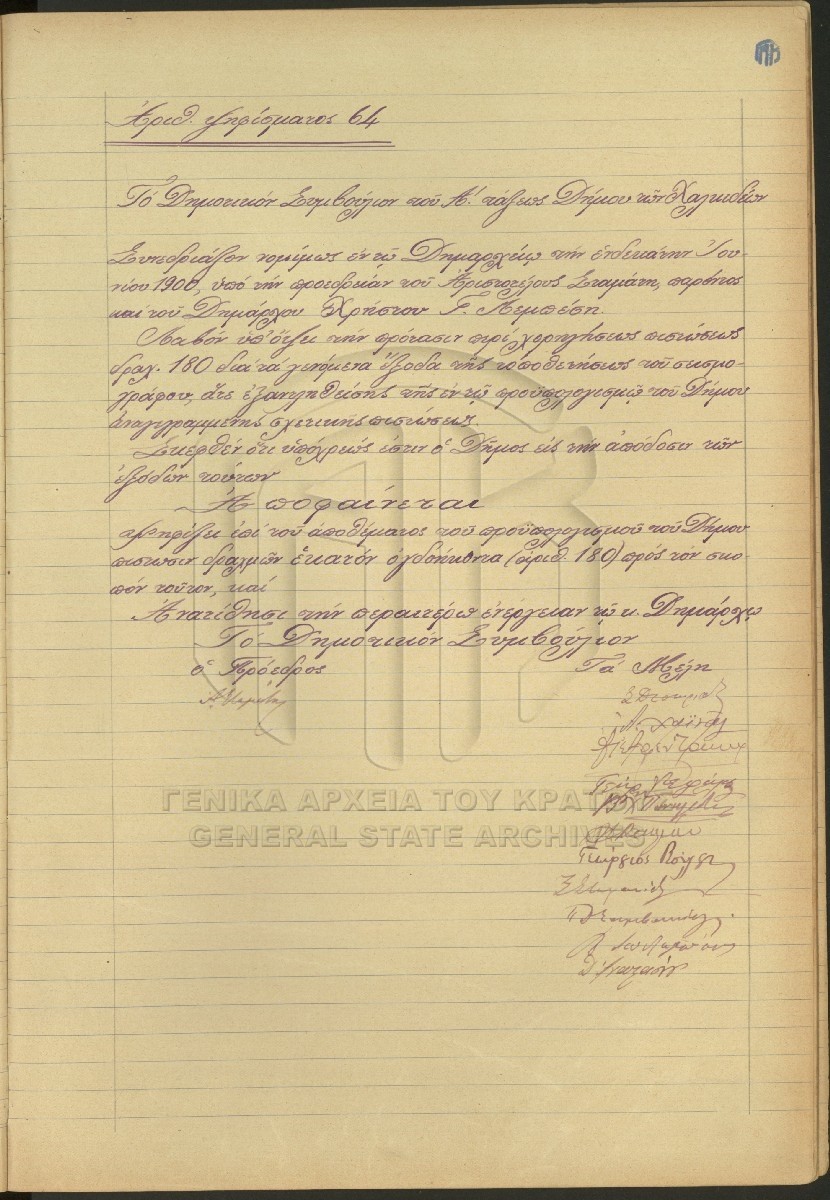 Ἀριθ. ψηφίσματος 64
Τό Δημοτικόν Συμβούλιον τοῦ Α΄. τάξεως Δήμου τῶν Χαλκιδέων
Συνεδριάζον νομίμως ἐν τῷ Δημαρχείῳ τήν ἑνδεκάτην Ἰου-
νίου 1900, ὑπό τήν προεδρείαν τοῦ Ἀριστοτέλους Σταμάτη, παρόντος
καί τοῦ Δημάρχου Χρήστου Γ. Λεμπέση.
Λαβόν ὑπ' ὄψει τήν πρότασιν περί χορηγήσεως πιστώσεως
δραχ. 180 διά τά γενόμενα ἔξοδα τῆς τοποθετήσεως τοῦ σεισμο-
γράφου, ἅτε ἐξαντληθείσης τῆς ἐν τῷ προϋπολογισμῷ τοῦ Δήμου
ἀναγεγραμμένης σχετικῆς πιστώσεως.
Σκεφθέν ὅτι ὑπόχρεώς ἐστιν ὁ Δῆμος εἰς τήν ἀπόδοσιν τῶν
ἐξόδων τούτων
Ἀποφαίνεται
Ψηφίζει ἐπί τοῦ ἀποθέματος τοῦ προϋπολογισμοῦ τοῦ Δήμου
πίστωσιν δραχμῶν ἑκατόν ὀγδοήκοντα (ἀριθ. 180) πρός τόν σκο-
πόν τοῦτον, καί
Ἀνατίθησι τήν περαιτέρω ἐνέργειαν τῷ κ. Δημάρχῳ
Τό Δημοτικόν Συμβούλιον
ὁ Πρόεδρος Τά Μέλη
ΓΕΝΙΚΑ ΑΡΧΕΙΑ ΤΟΥ ΚΡΑΤΟΥΣ
GENERAL STATE ARCHIVES
Γεώργιος